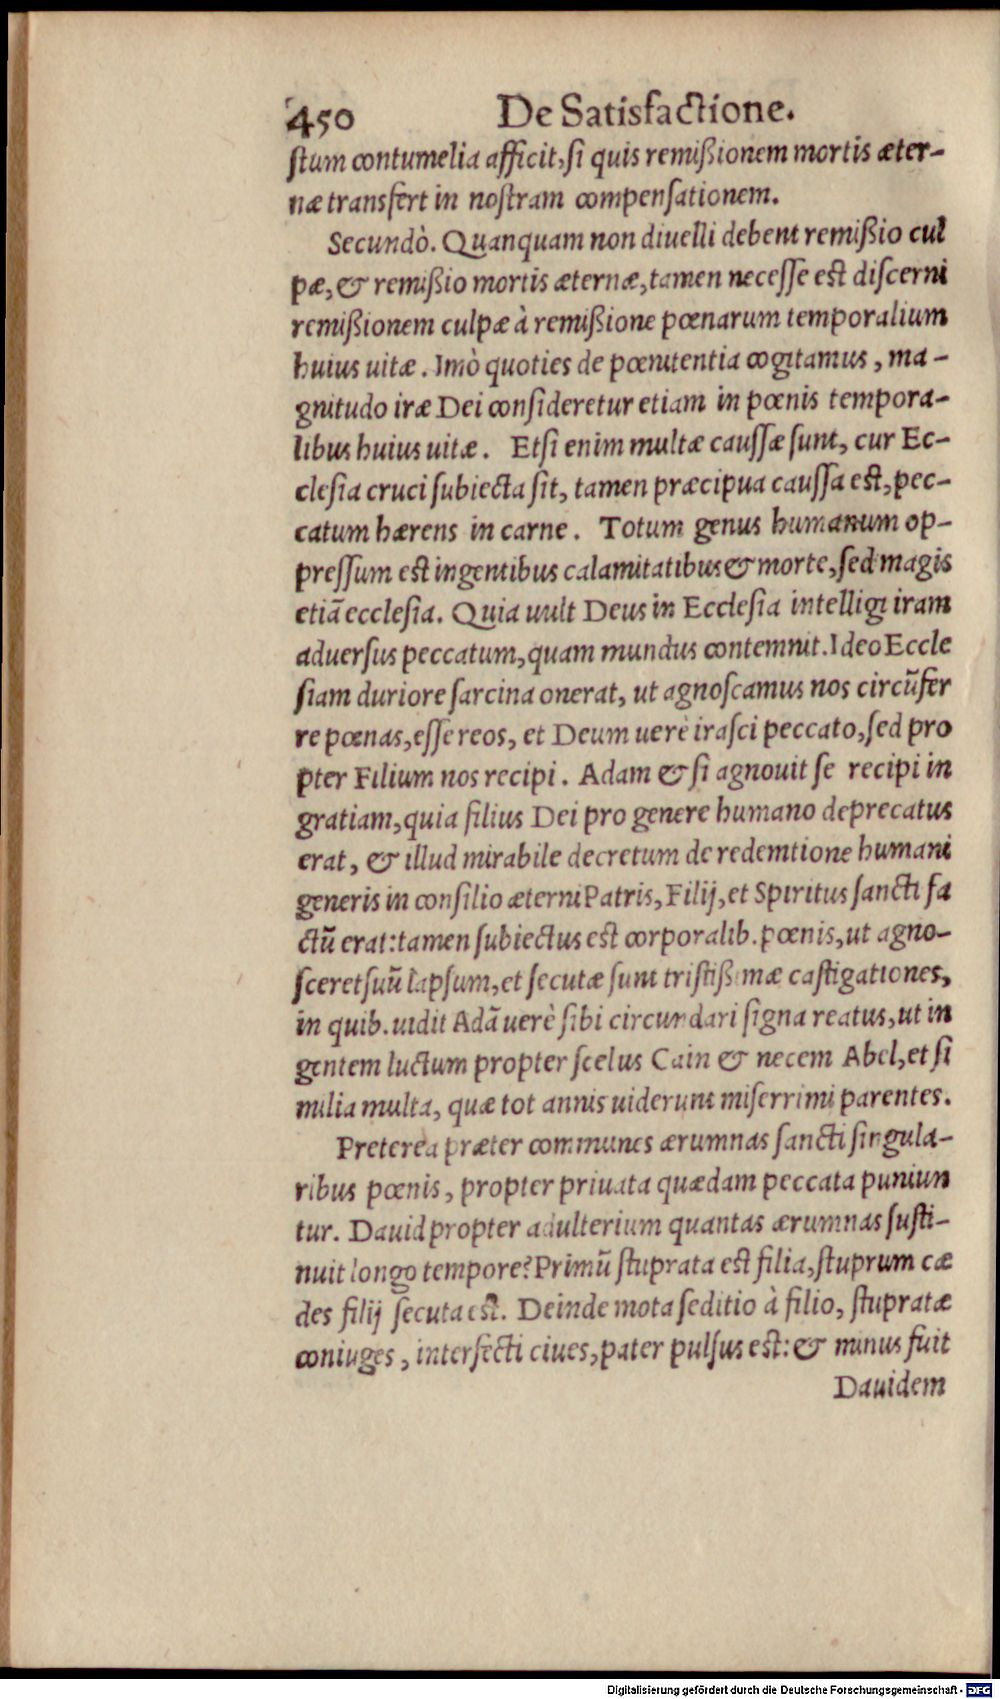 450 De Satisfactione.
stum contumelia afficit, si quis remißionem mortis æter-
næ transfert in nostram compensationem.
Secundò. Quanquam non diuelli debent remißio cul
pæ, & remißio mortis æternæ, tamen necesse est discerni
remißionem culpæ à remißione pœnarum temporalium
huius uitæ. Imò quoties de pœnitentia cogitamus, ma-
gnitudo iræ Dei consideretur etiam in pœnis tempora-
libus huius uitæ. Etsi enim multæ caussæ sunt, cur Ec-
clesia cruci subiecta sit, tamen præcipua caussa est, pec-
catum hærens in carne. Totum genus humanum op-
pressum est ingentibus calamitatibus & morte, sed magis
etiā ecclesia. Quia uult Deus in Ecclesia intelligi iram
aduersus peccatum, quam mundus contemnit. Ideo Eccle
siam duriore sarcina onerat, ut agnoscamus nos circūfer
re pœnas, esse reos, et Deum uerè irasci peccato, sed pro
pter Filium nos recipi. Adam & si agnouit se recipi in
gratiam, quia filius Dei pro genere humano deprecatus
erat, & illud mirabile decretum de redemtione humani
generis in consilio æterni Patris, Filij, et Spiritus sancti fa
ctū erat: tamen subiectus est corporalib. pœnis, ut agno-
sceret suū lapsum, et secutæ sunt tristißimæ castigationes,
in quib. uidit Adā uerè sibi circundari signa reatus, ut in
gentem luctum propter scelus Cain & necem Abel, et si
milia multa, quæ tot annis uiderunt miserrimi parentes.
Preterea præter communes ærumnas sancti singula-
ribus pœnis, propter priuata quædam peccata puniun
tur. Dauid propter adulterium quantas ærumnas susti-
nuit longo tempore? Primū stuprata est filia, stuprum cæ
des filij secuta est. Deinde mota seditio à filio, stupratæ
coniuges, interfecti ciues, pater pulsus est: & minus fuit
Dauidem
Digitalisierung gefördert durch die Deutsche Forschungsgemeinschaft - DFG